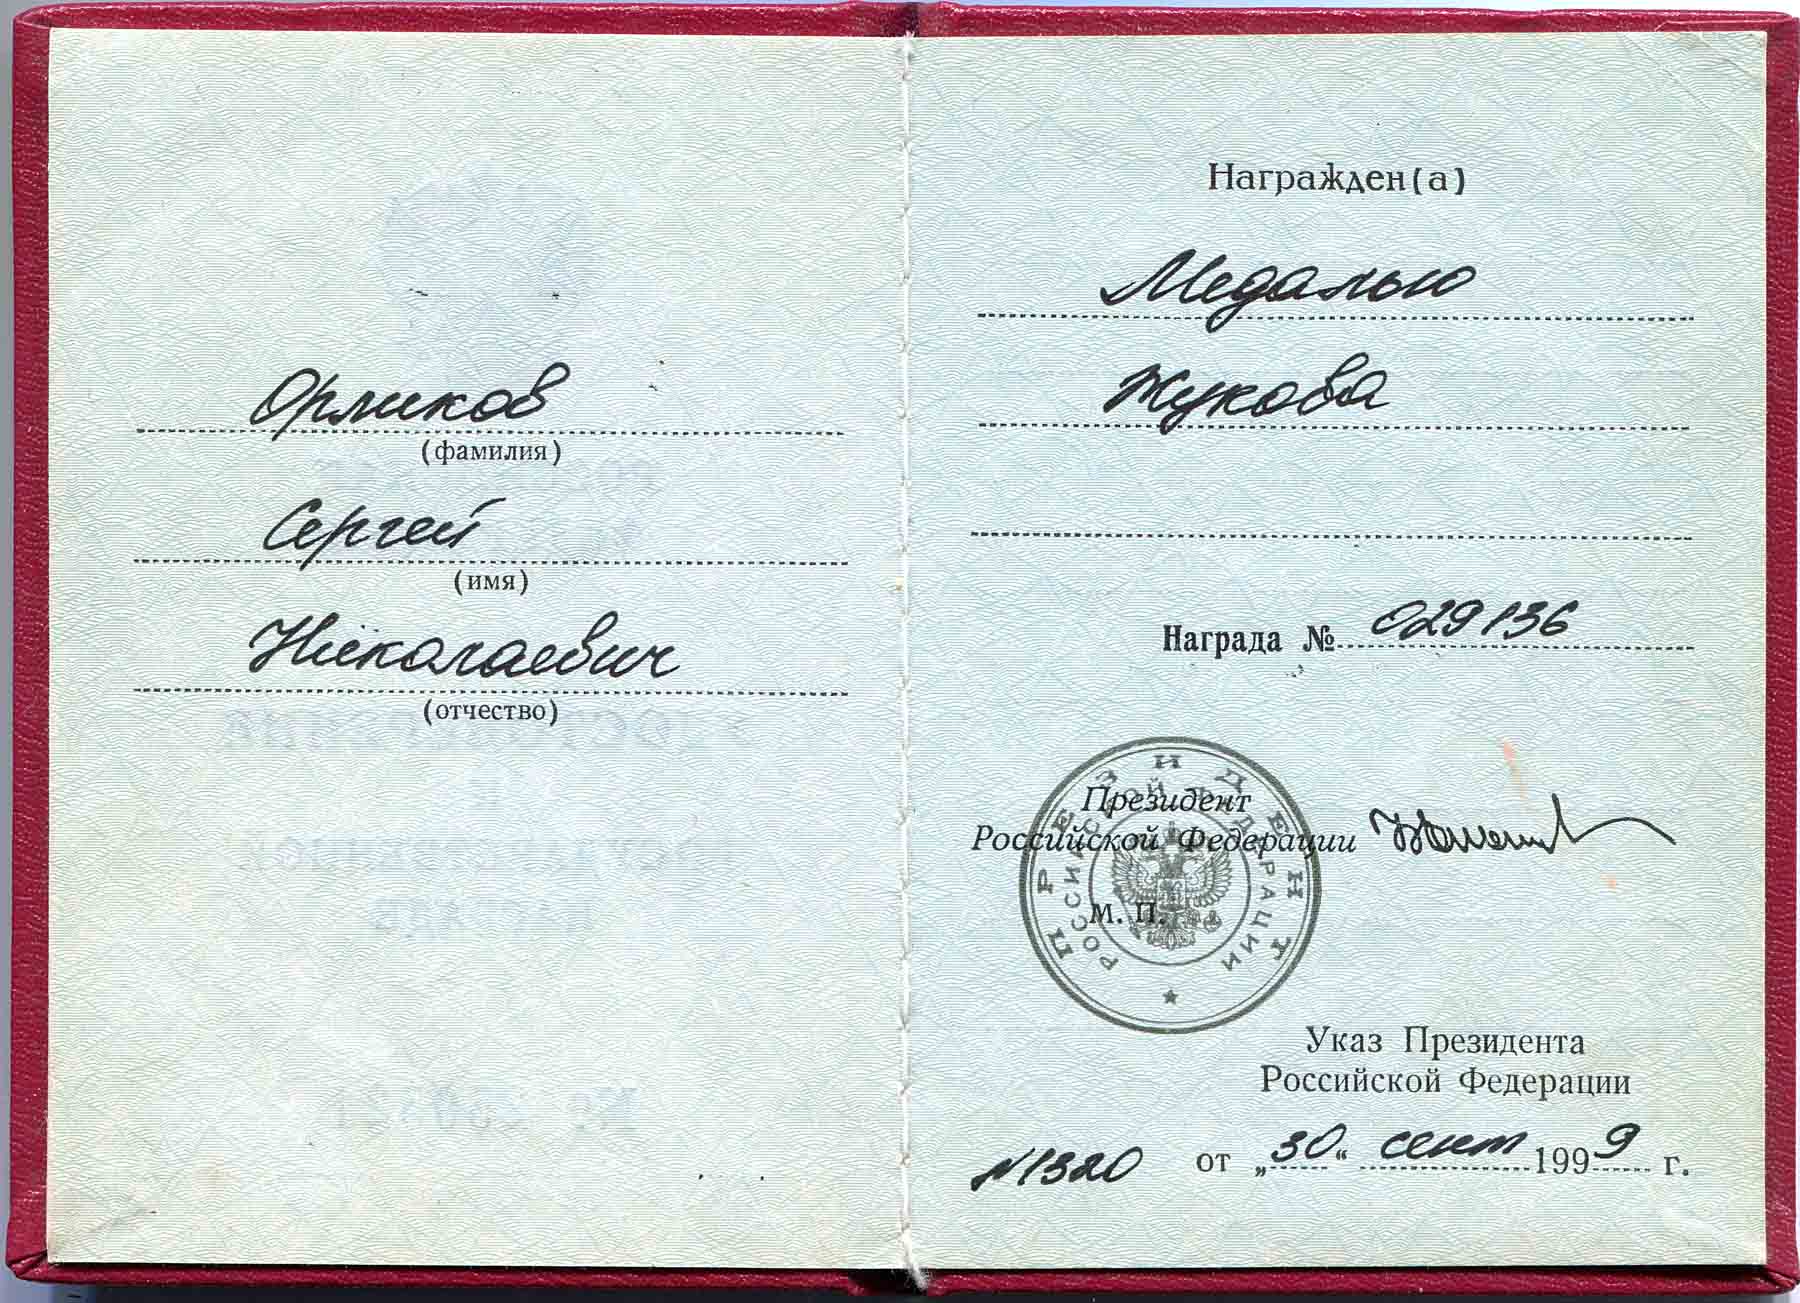 Орликов
(фамилия)
Сергей
(имя)
Николаевич
(отчество)
Награжден(а)
Медалью
Жукова
Награда № 029136
Президент
Российской Федерации
М. П.
ПРЕЗИДЕНТ
РОССИЙСКОЙ ФЕДЕРАЦИИ
Указ Президента
Российской Федерации
№1320 от „30“ сент 1999 г.